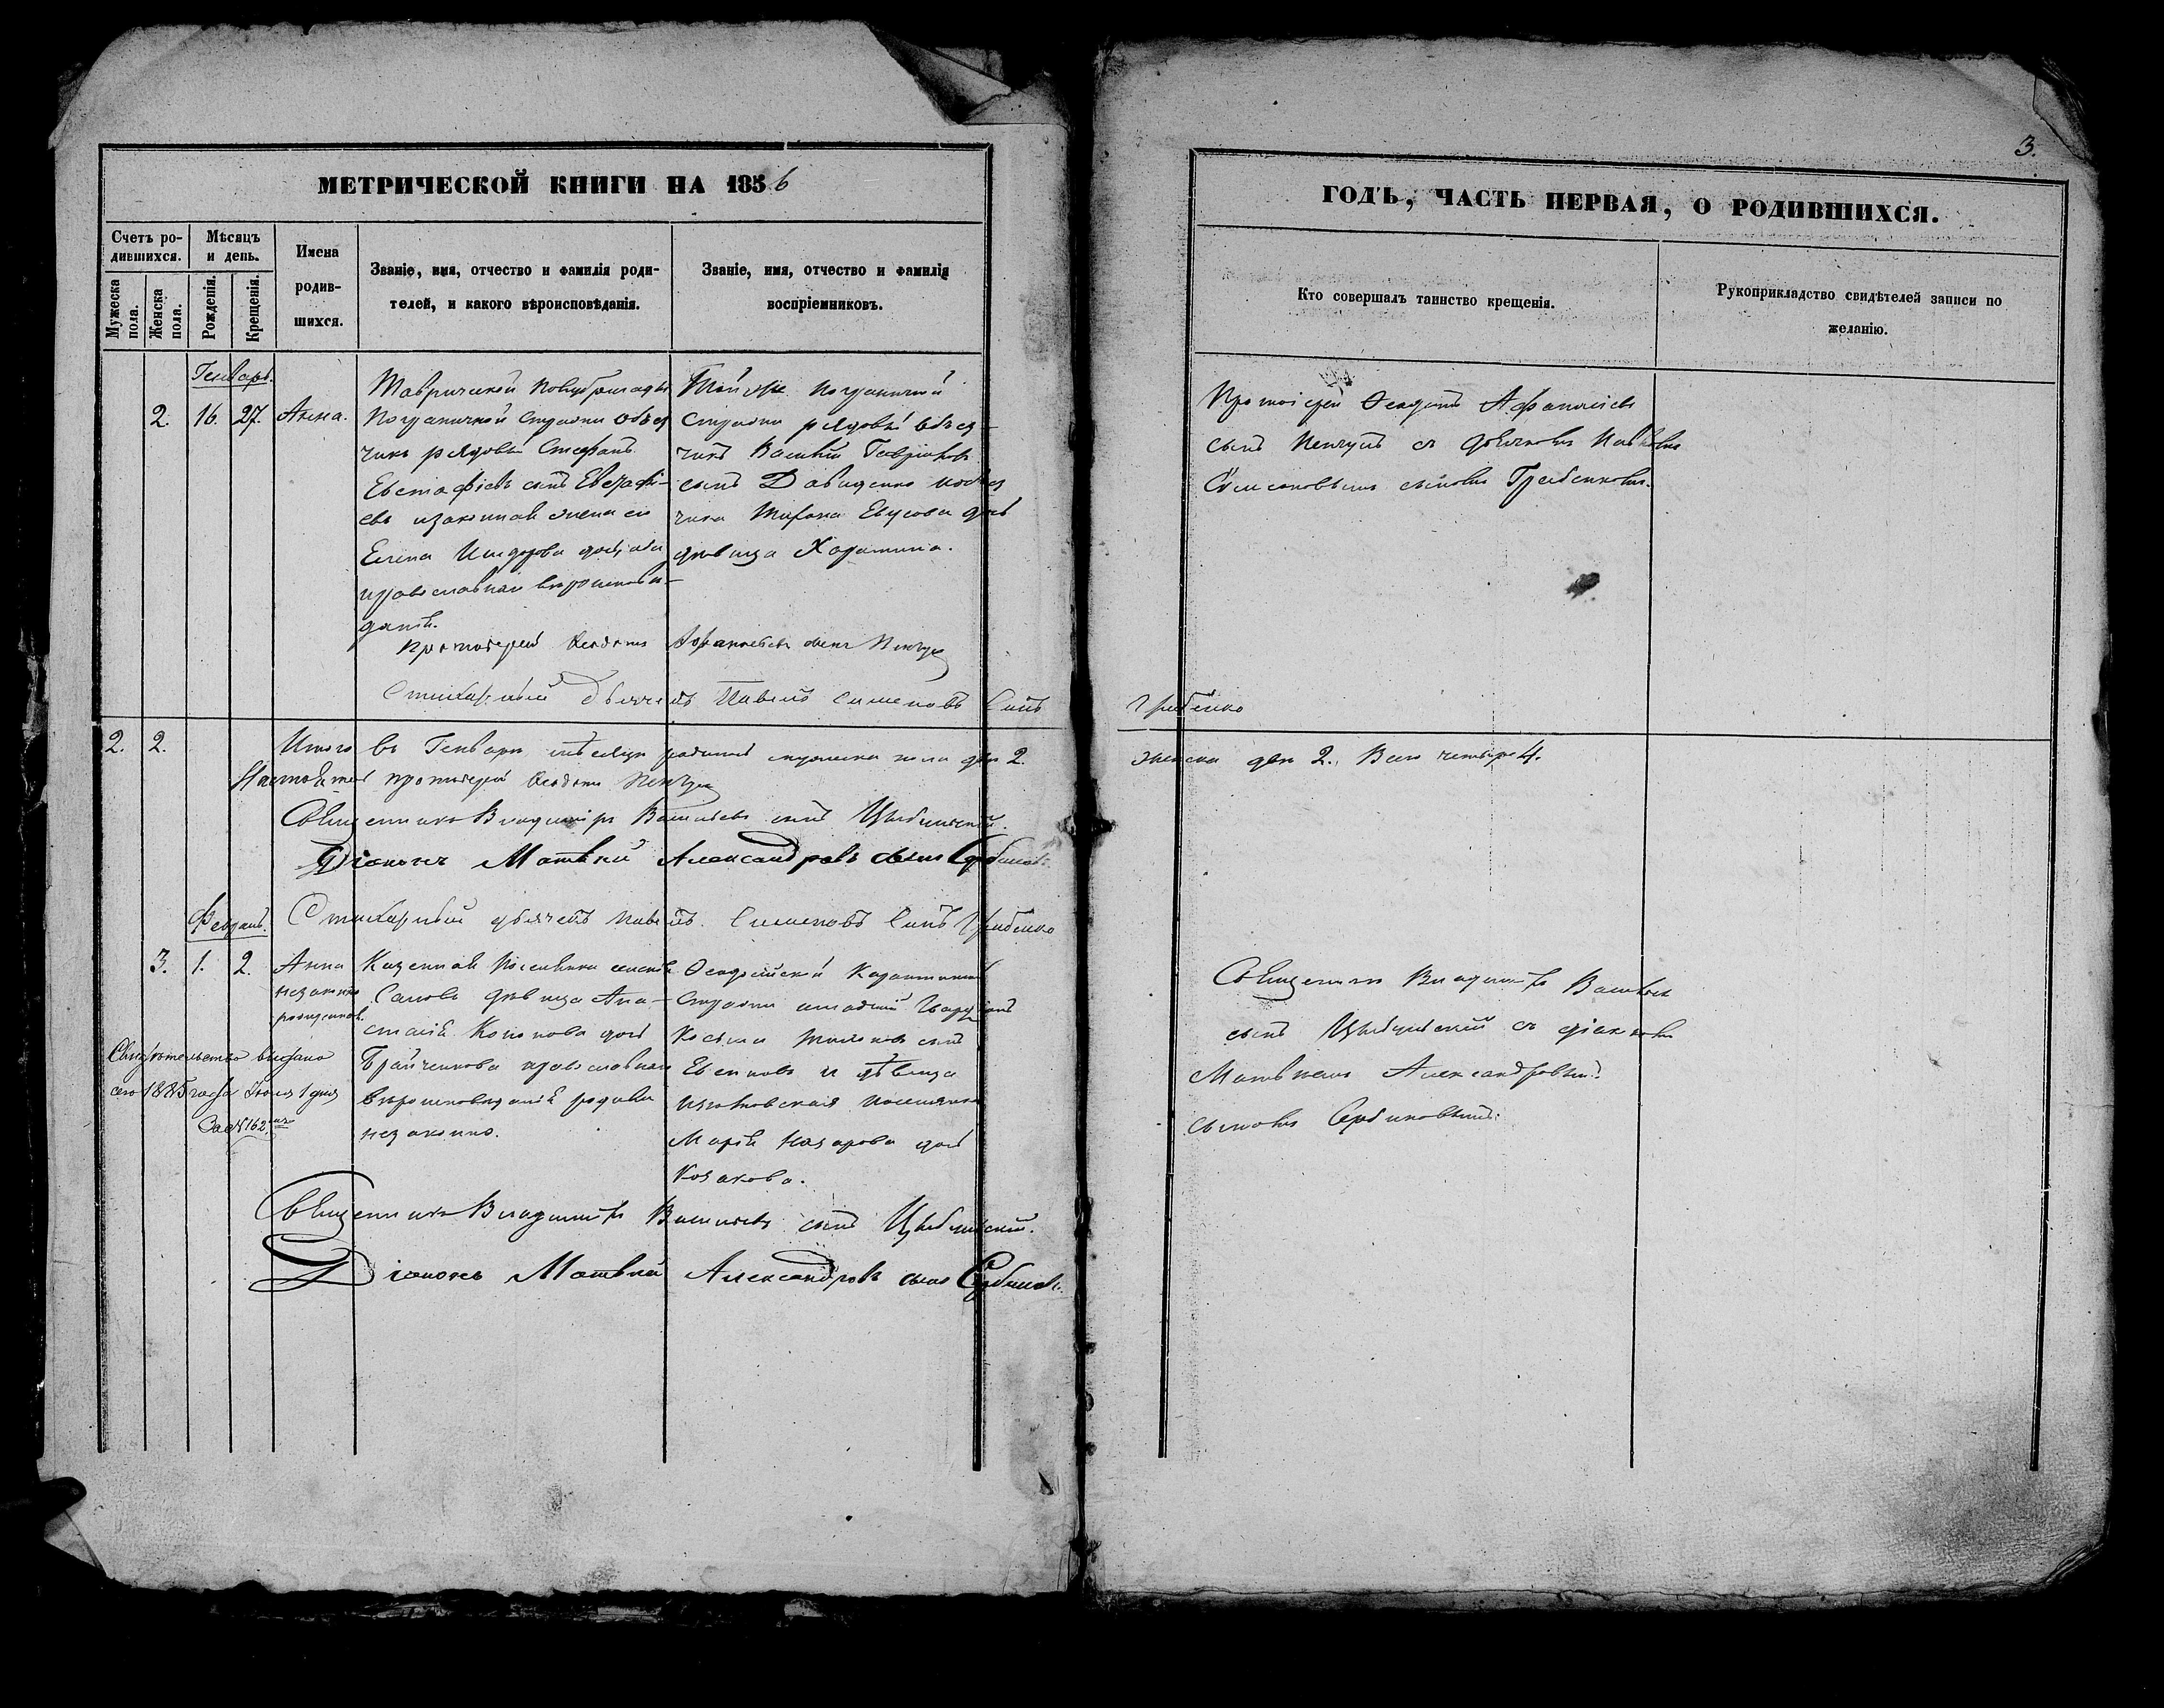 МЕТРИЧЕСКОЙ КНИГИ НА 1856
Счетъ ро-
дившихся.
Мужеска
пола.
Женска
пола.
Мѣсяцъ
и день.
Рожденія.
Крещенія.
Имена
родив-
шихся.
Званіе, имя, отчество и фамилія роди-
телей, и какого вѣроисповѣданія.
Званіе, имя, отчество и фамилія
воспріемниковъ.
Генварь.
2. 16. 27. Анна.
Таврической полубригады
пограничной стражи объѣзд
чикъ рядовый Стефанъ
Евстафіевъ сынъ
евъ изаконная жена его
Елена дочь, оба
православнаго вѣроисповѣ-
данія.
Той же пограничной
стражи рядовый объѣзд-
чикъ Василій Гавріиловъ
сынъ Давиденко
чика дочь
дѣвица
Протоіерей Ѳеодотъ Афанасьевъ сынъ Пенчулъ
Стихарный дьячекъ Павелъ Симеоновъ Сынъ
2. 2. Итого въ Генварѣ мѣсяцѣ родилось мужеска пола два 2.
Настоятель протоіерей Ѳеодотъ Пенчулъ
Священникъ Владиміръ Васильевъ сынъ
Діаконъ Матвѣй Александровъ сынъ Сербиновъ.
Стихарный дьячекъ Павелъ Симеоновъ Сынъ Гребенко
Феврал.
3. 1. 2. Анна
незаконно
рожденная.
Казенная поселянка
дѣвица Ана-
стасія Кононова дочь
православнаго
вѣроисповѣданія родила
незаконно.
Ѳеодосійской карантинной
стражи младшій
Косьма сынъ
Евсиковъ и дѣвица
поселянка
Марія Назарова дочь
Козакова.
Свидѣтельство выдано
сего 1885 года Іюня 1 дня
За № 162.
Священникъ Владиміръ Васильевъ сынъ
Діаконъ Матвѣй Александровъ сынъ Сербиновъ.
3.
ГОДЪ, ЧАСТЬ ПЕРВАЯ, О РОДИВШИХСЯ.
Кто совершалъ таинство крещенія.
Рукоприкладство свидѣтелей записи по
желанію.
Протоіерей Ѳеодотъ Афанасіевъ
сынъ Пенчулъ съ дьячкомъ Павломъ
Симеоновымъ сыномъ Гребенковымъ.
Гребенко
женска два 2. Всего четыре 4.
Священникъ Владиміръ Васильевъ
сынъ съ діакономъ
Матвѣемъ Александровымъ
сыномъ Сербиновымъ.